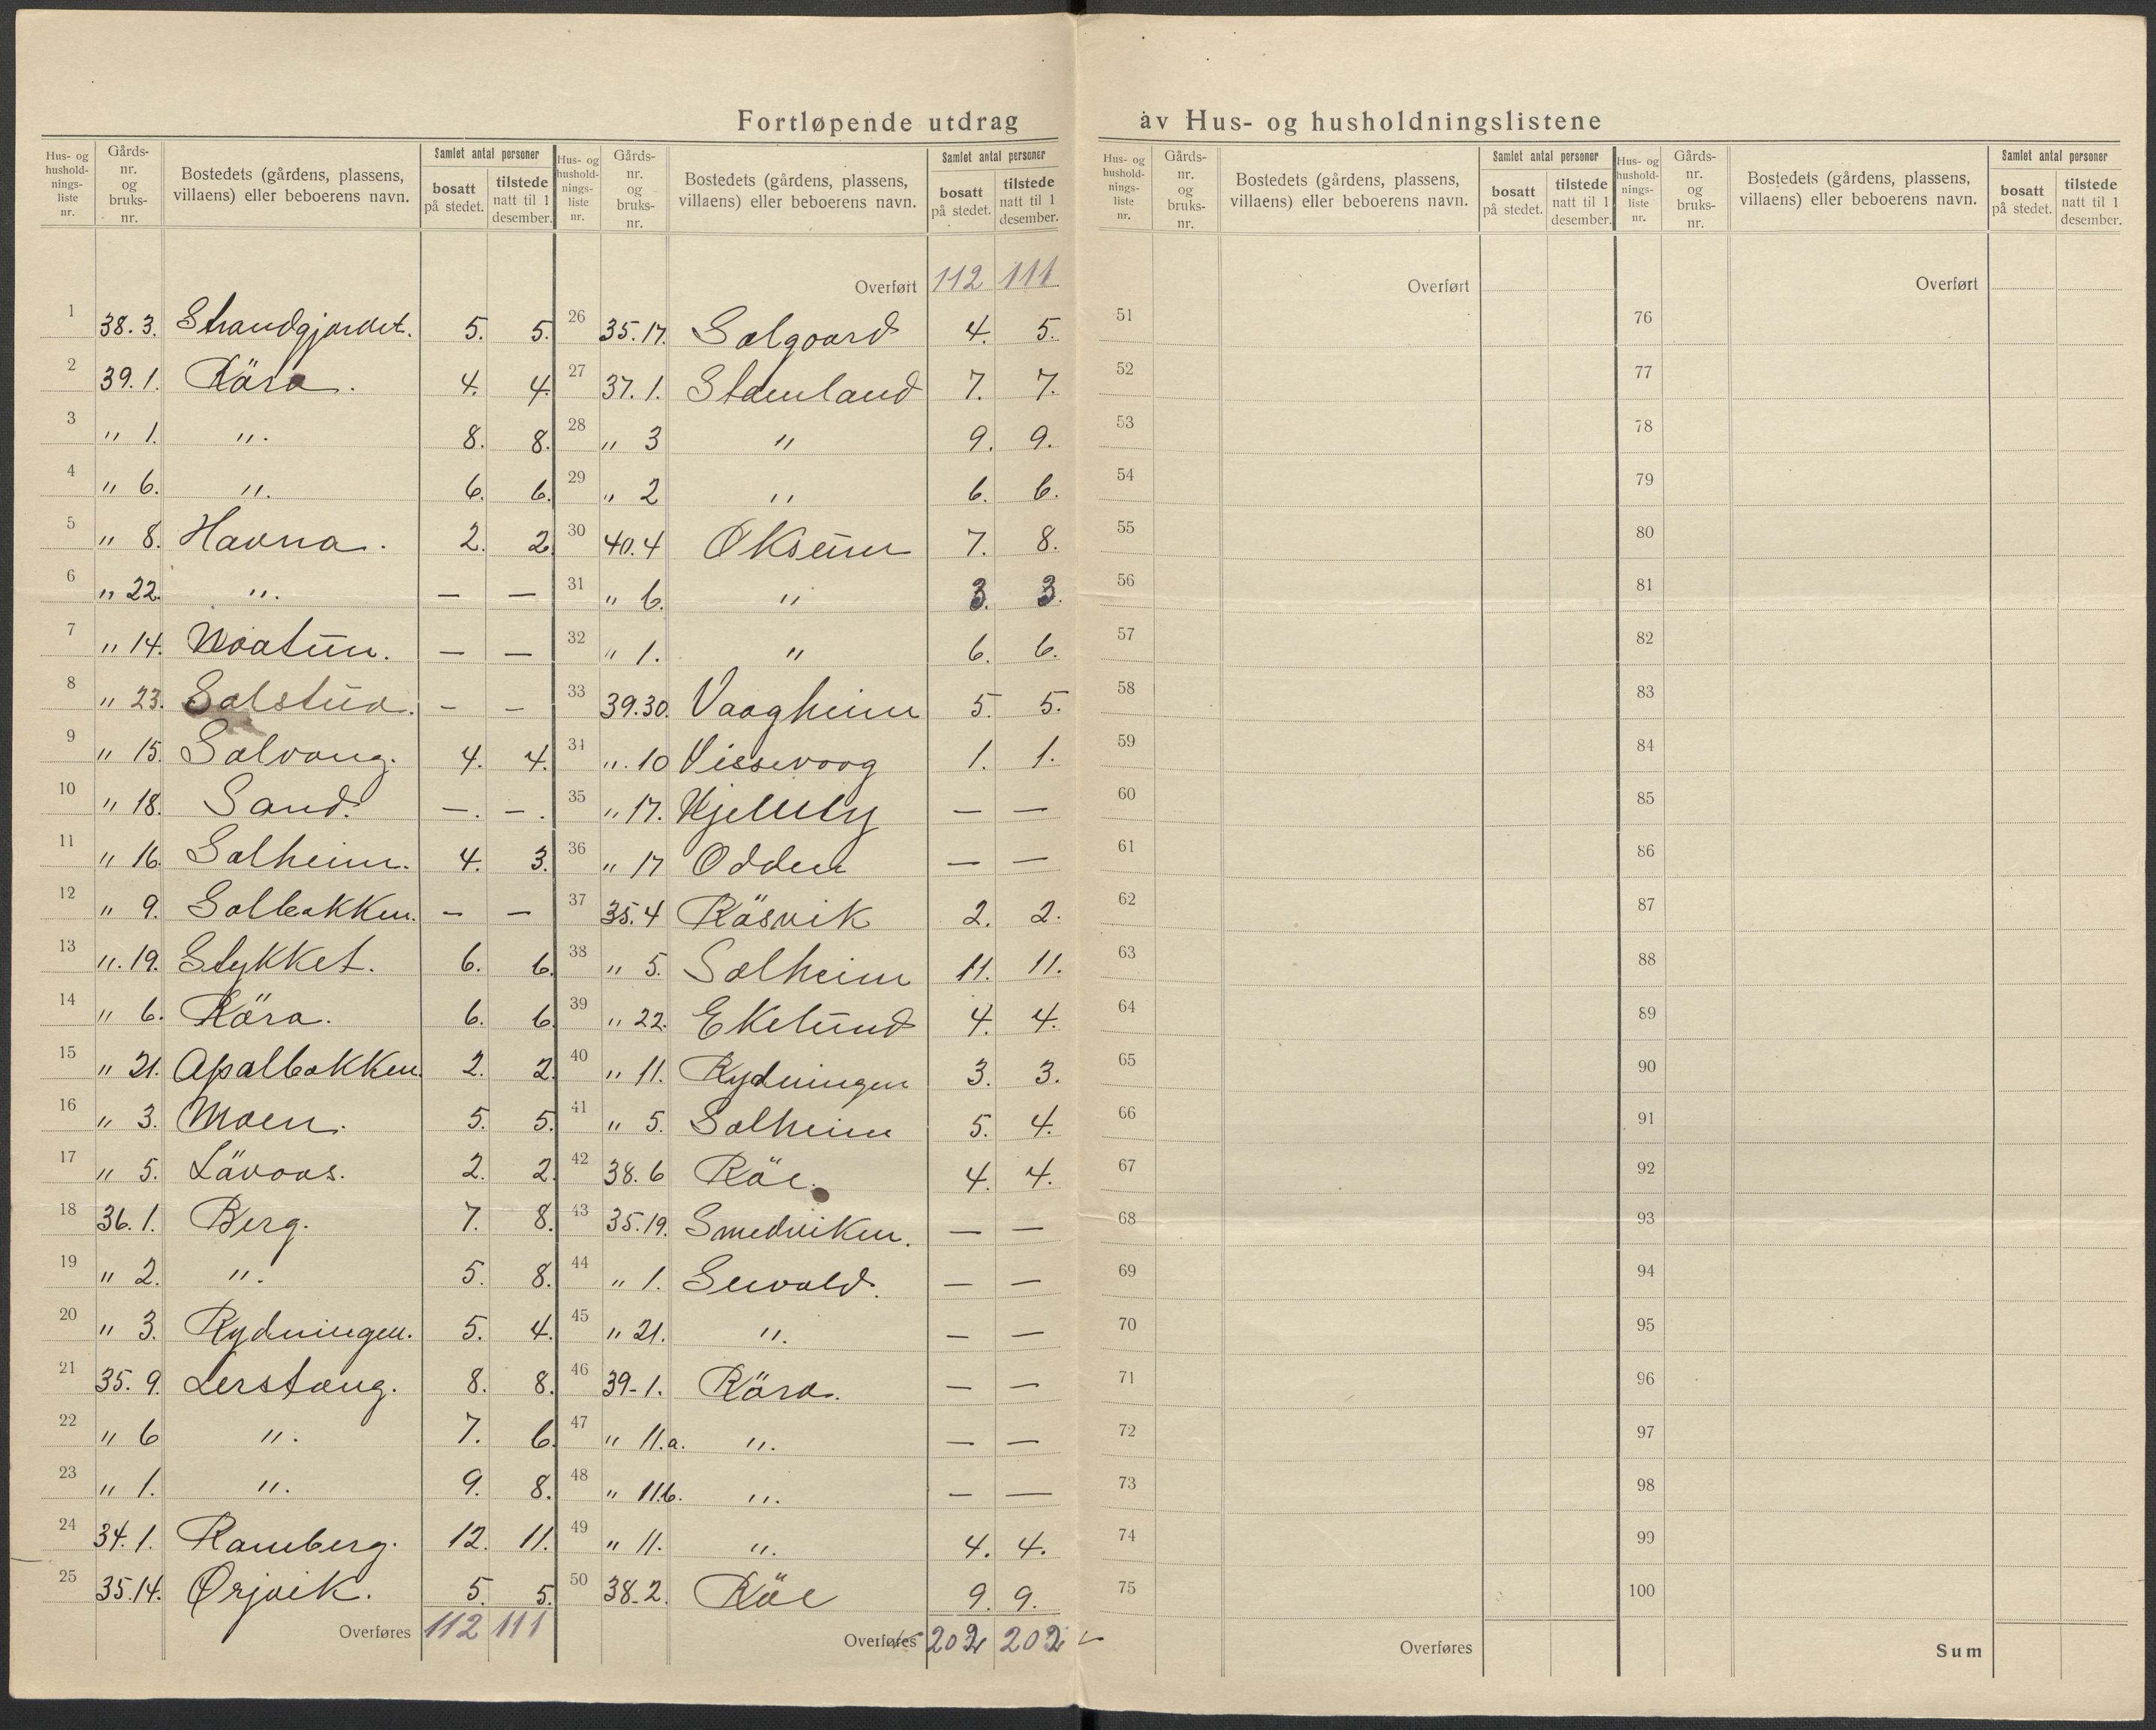 Fortløpende utdrag av Hus- og husholdningslistene
Hus- og husholdningsliste nr. | Gårds-nr. og bruks-nr. | Bostedets (gårdens, plassens, villaens) eller beboerens navn. | Samlet antal personer bosatt på stedet. | tilstede natt til 1 desember.
1 38.3. Strandgjærdet. 5. 5.
2 39.1. Räsa. 4. 4.
3 " 1. ". 8. 8.
4 " 6. ". 6. 6.
5 " 8. Havna. 2. 2
6 " 22. ". — —
7 " 14. Noatun. — —
8 " 23. Solstua. — —
9 " 15. Solvang. 4. 4.
10 " 18. Sand. —. —.
11 " 16. Solheim. 4. 3.
12 " 9. Solbakken. — —
13 ". 19. Stykket. 6. 6.
14 " 6. Röra. 6. 6.
15 " 21. Apalbakken. 2. 2.
16 " 3. Moen. 5. 5.
17 " 5. Lävaas. 2. 2
18 36.1. Berg. 7. 8.
19 " 2. ". 5. 8.
20 " 3. Rydningen. 5. 4.
21 35.9. Lerstang. 8. 8.
22 " 6 ". 7. 6.
23 " 1. ". 9. 8.
24 34.1. Ramberg. 12. 11.
25 35.14. Ørjvik. 5. 5.
Overføres 112 111
Hus- og husholdningsliste nr. | Gårds-nr. og bruks-nr. | Bostedets (gårdens, plassens, villaens) eller beboerens navn. | Samlet antal personer bosatt på stedet. | tilstede natt til 1 desember.
Overført 112 111
26 35.17. Solgaard 4. 5.
27 37.1. Stamland 7. 7.
28 " 3 " 9. 9.
29 " 2 " 6. 6.
30 40.4 Oksum 7. 8.
31 " 6. " 3. 3.
32 " 1. " 6. 6.
33 39.30. Vaagheim 5. 5.
34 ". 10 Vissevaag 1. 1.
35 " 17. Hjellely — —
36 " 17 Odden — —
37 35.4 Räsvik 2. 2.
38 " 5. Solheim 11. 11.
39 " 22. Ekelund 4. 4.
40 " 11. Rydningen 3. 3.
41 " 5. Solheim 5. 4.
42 38.6 Räe. 4. 4.
43 35.19. Smedviken. — —
44 " 1. Seivold. — —
45 " 21. ". — —
46 39-1. Röra. — —
47 " 11.a. ". — —
48 " 11.b. ". — —
49 " 11. ". 4. 4.
50 38-2. Räe 9. 9.
Overføres 202 202
Hus- og husholdningsliste nr. | Gårds-nr. og bruks-nr. | Bostedets (gårdens, plassens, villaens) eller beboerens navn. | Samlet antal personer bosatt på stedet. | tilstede natt til 1 desember.
Overført
51
52
53
54
55
56
57
58
59
60
61
62
63
64
65
66
67
68
69
70
71
72
73
74
75
Overføres
Hus- og husholdningsliste nr. | Gårds-nr. og bruks-nr. | Bostedets (gårdens, plassens, villaens) eller beboerens navn. | Samlet antal personer bosatt på stedet. | tilstede natt til 1 desember.
Overført
76
77
78
79
80
81
82
83
84
85
86
87
88
89
90
91
92
93
94
95
96
97
98
99
100
Sum